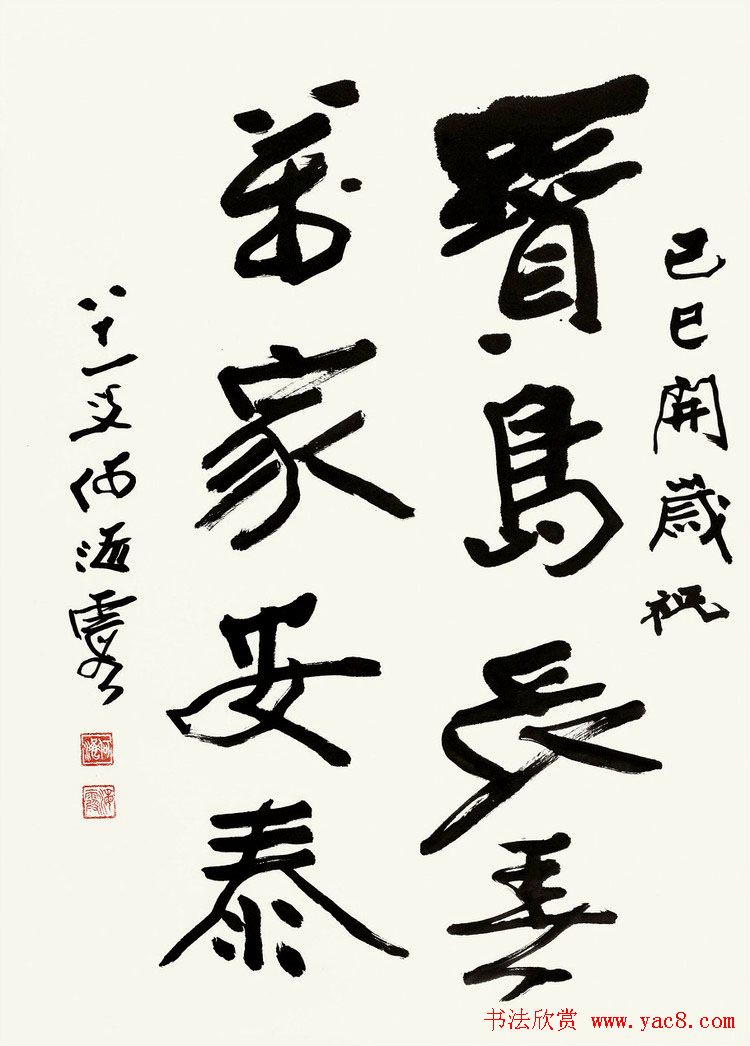 己巳開歲祝
寶島長春
萬家安泰
八十一叟何海霞
海霞
书法欣赏 www.yac8.com